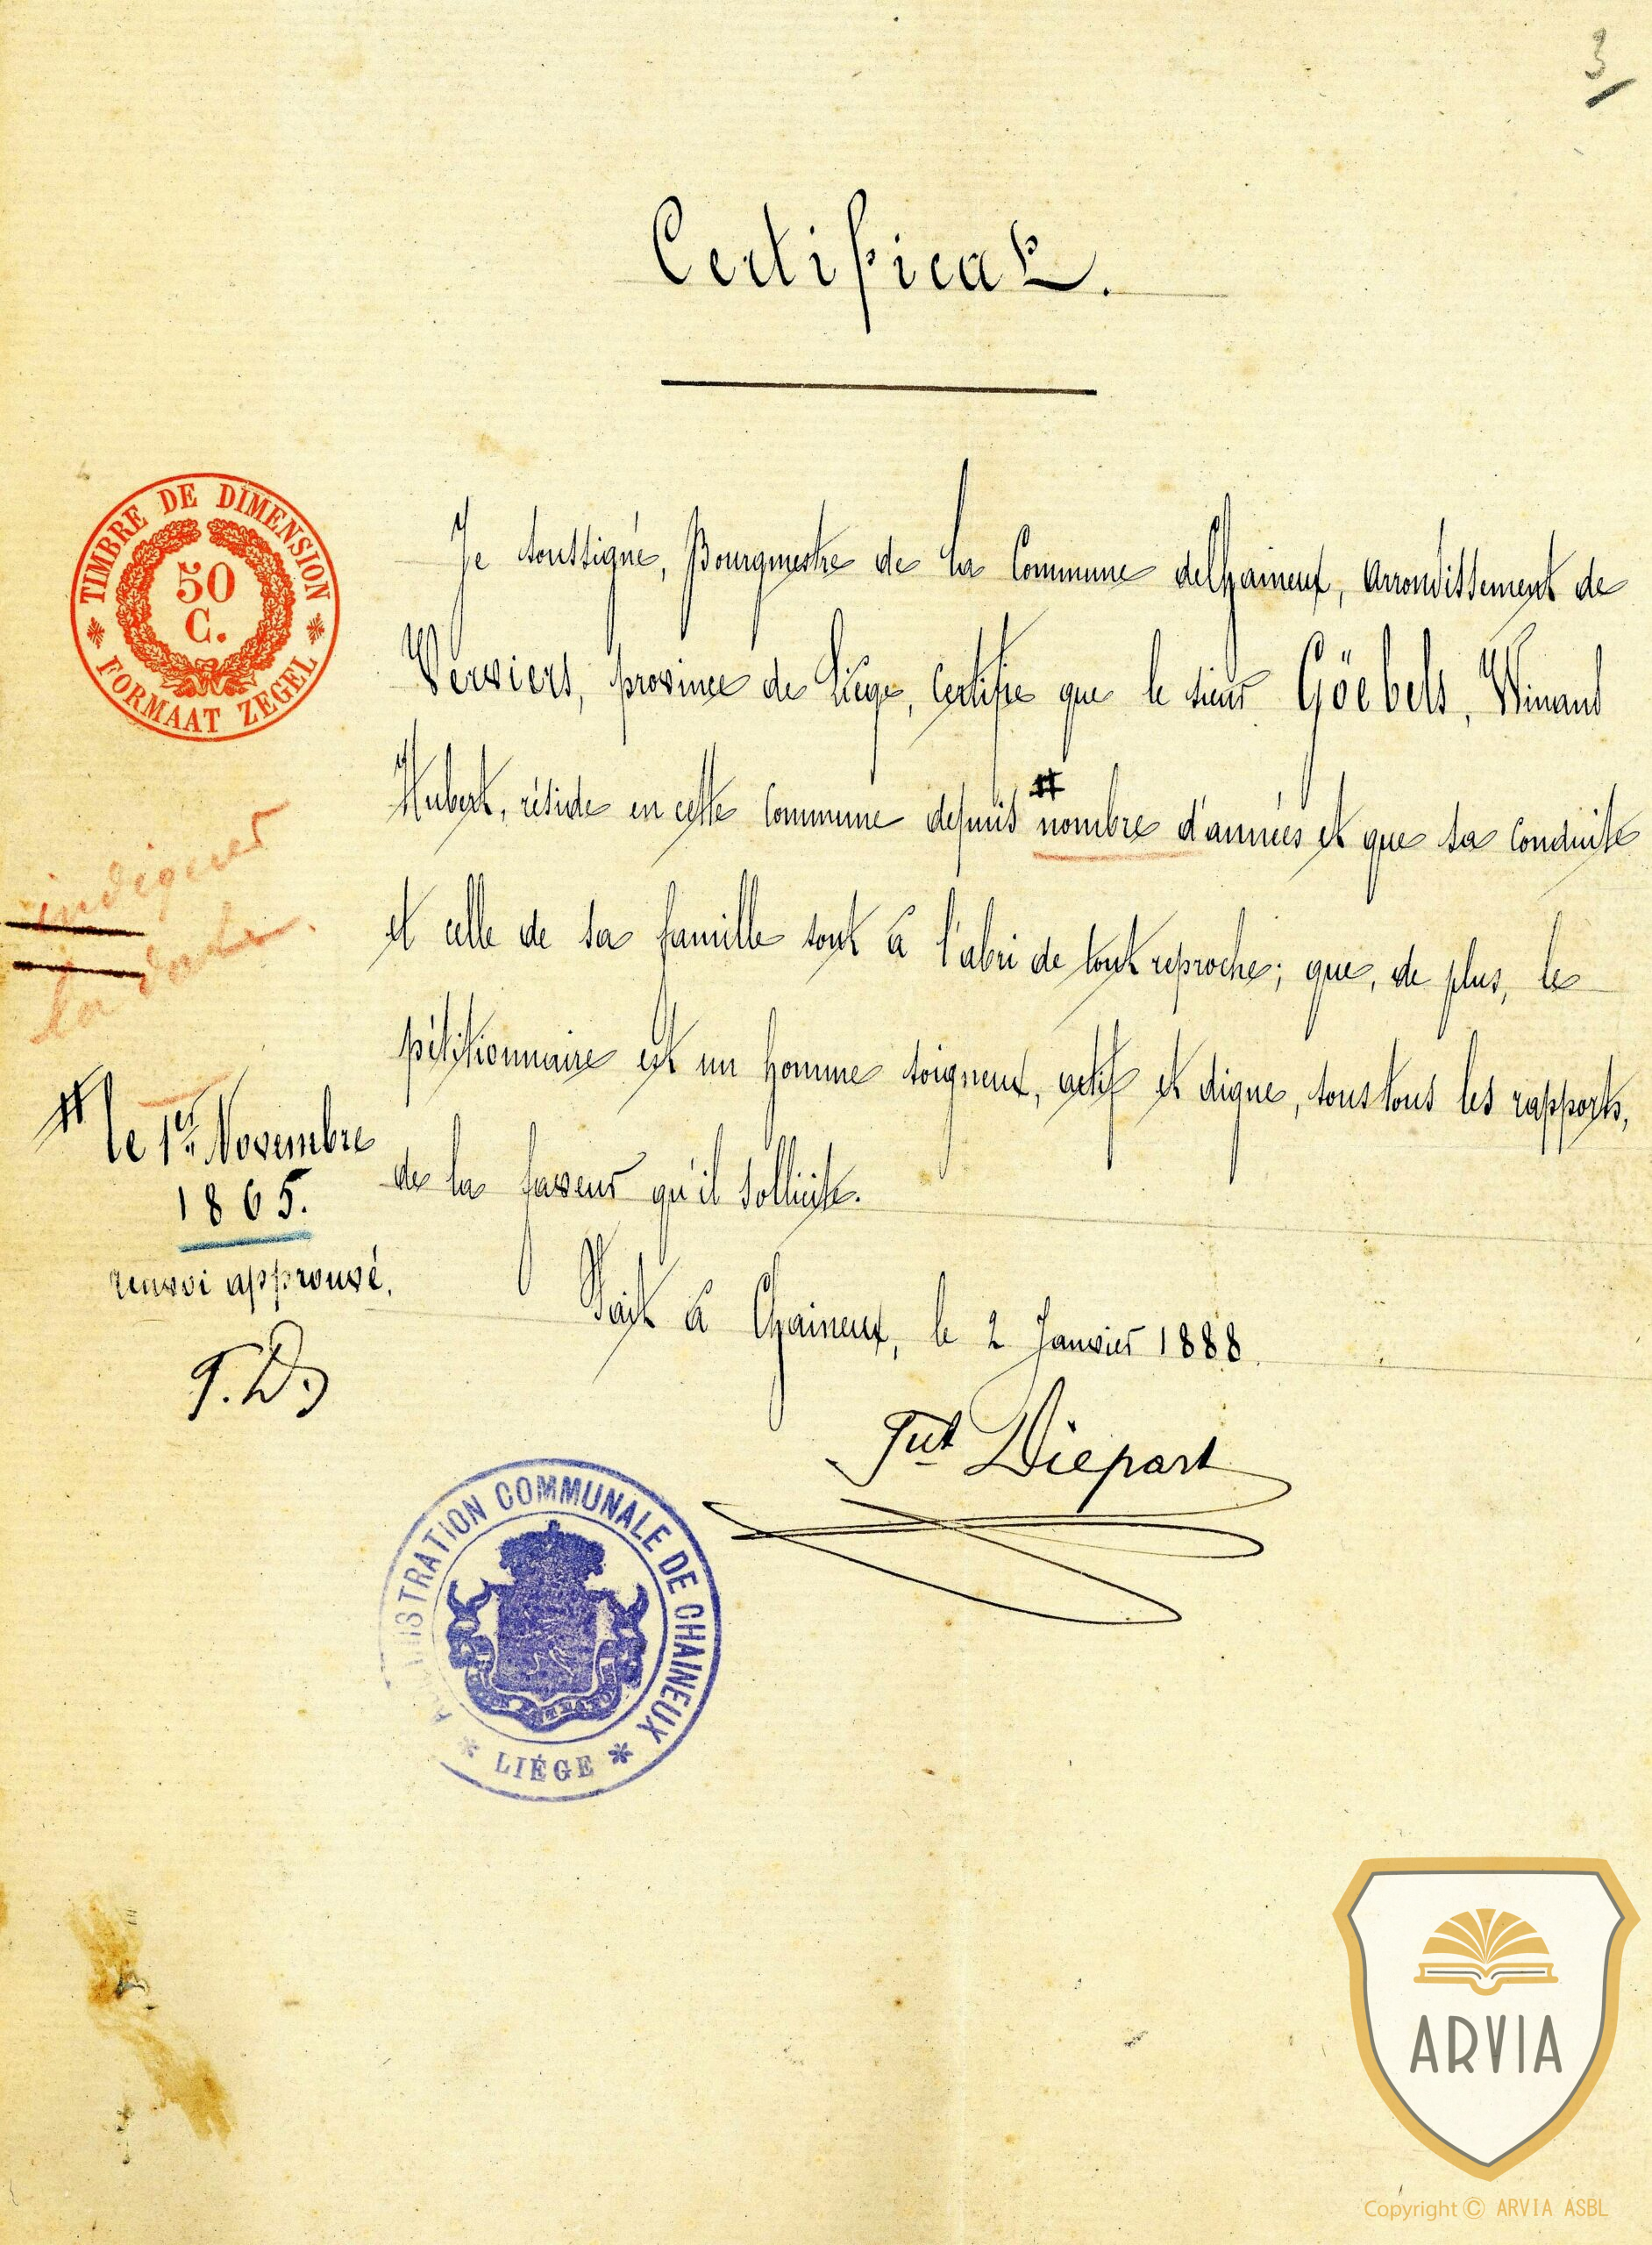 3
Certificat.
TIMBRE DE DIMENSION
50
C.
FORMAAT ZEGEL
Je soussigné, Bourgmestre de la Commune de Chaineux, arrondissement de
Verviers, province de Liége, certifie que le sieur Göebels, Winand
Hubert, réside en cette commune depuis # nombre d'années et que sa conduite
et celle de sa famille sont à l'abri de tout reproche; que, de plus, le
pétitionnaire est un homme soigneux, actif et digne, sous tous les rapports,
de la faveur qu'il sollicite.
Fait à Chaineux, le 2 Janvier 1888.
indiquer
la date.
# le 1er Novembre
1865.
renvoi approuvé.
T.D.
Diepart
ADMINISTRATION COMMUNALE DE CHAINEUX
* LIÉGE *
ARVIA
Copyright © ARVIA ASBL